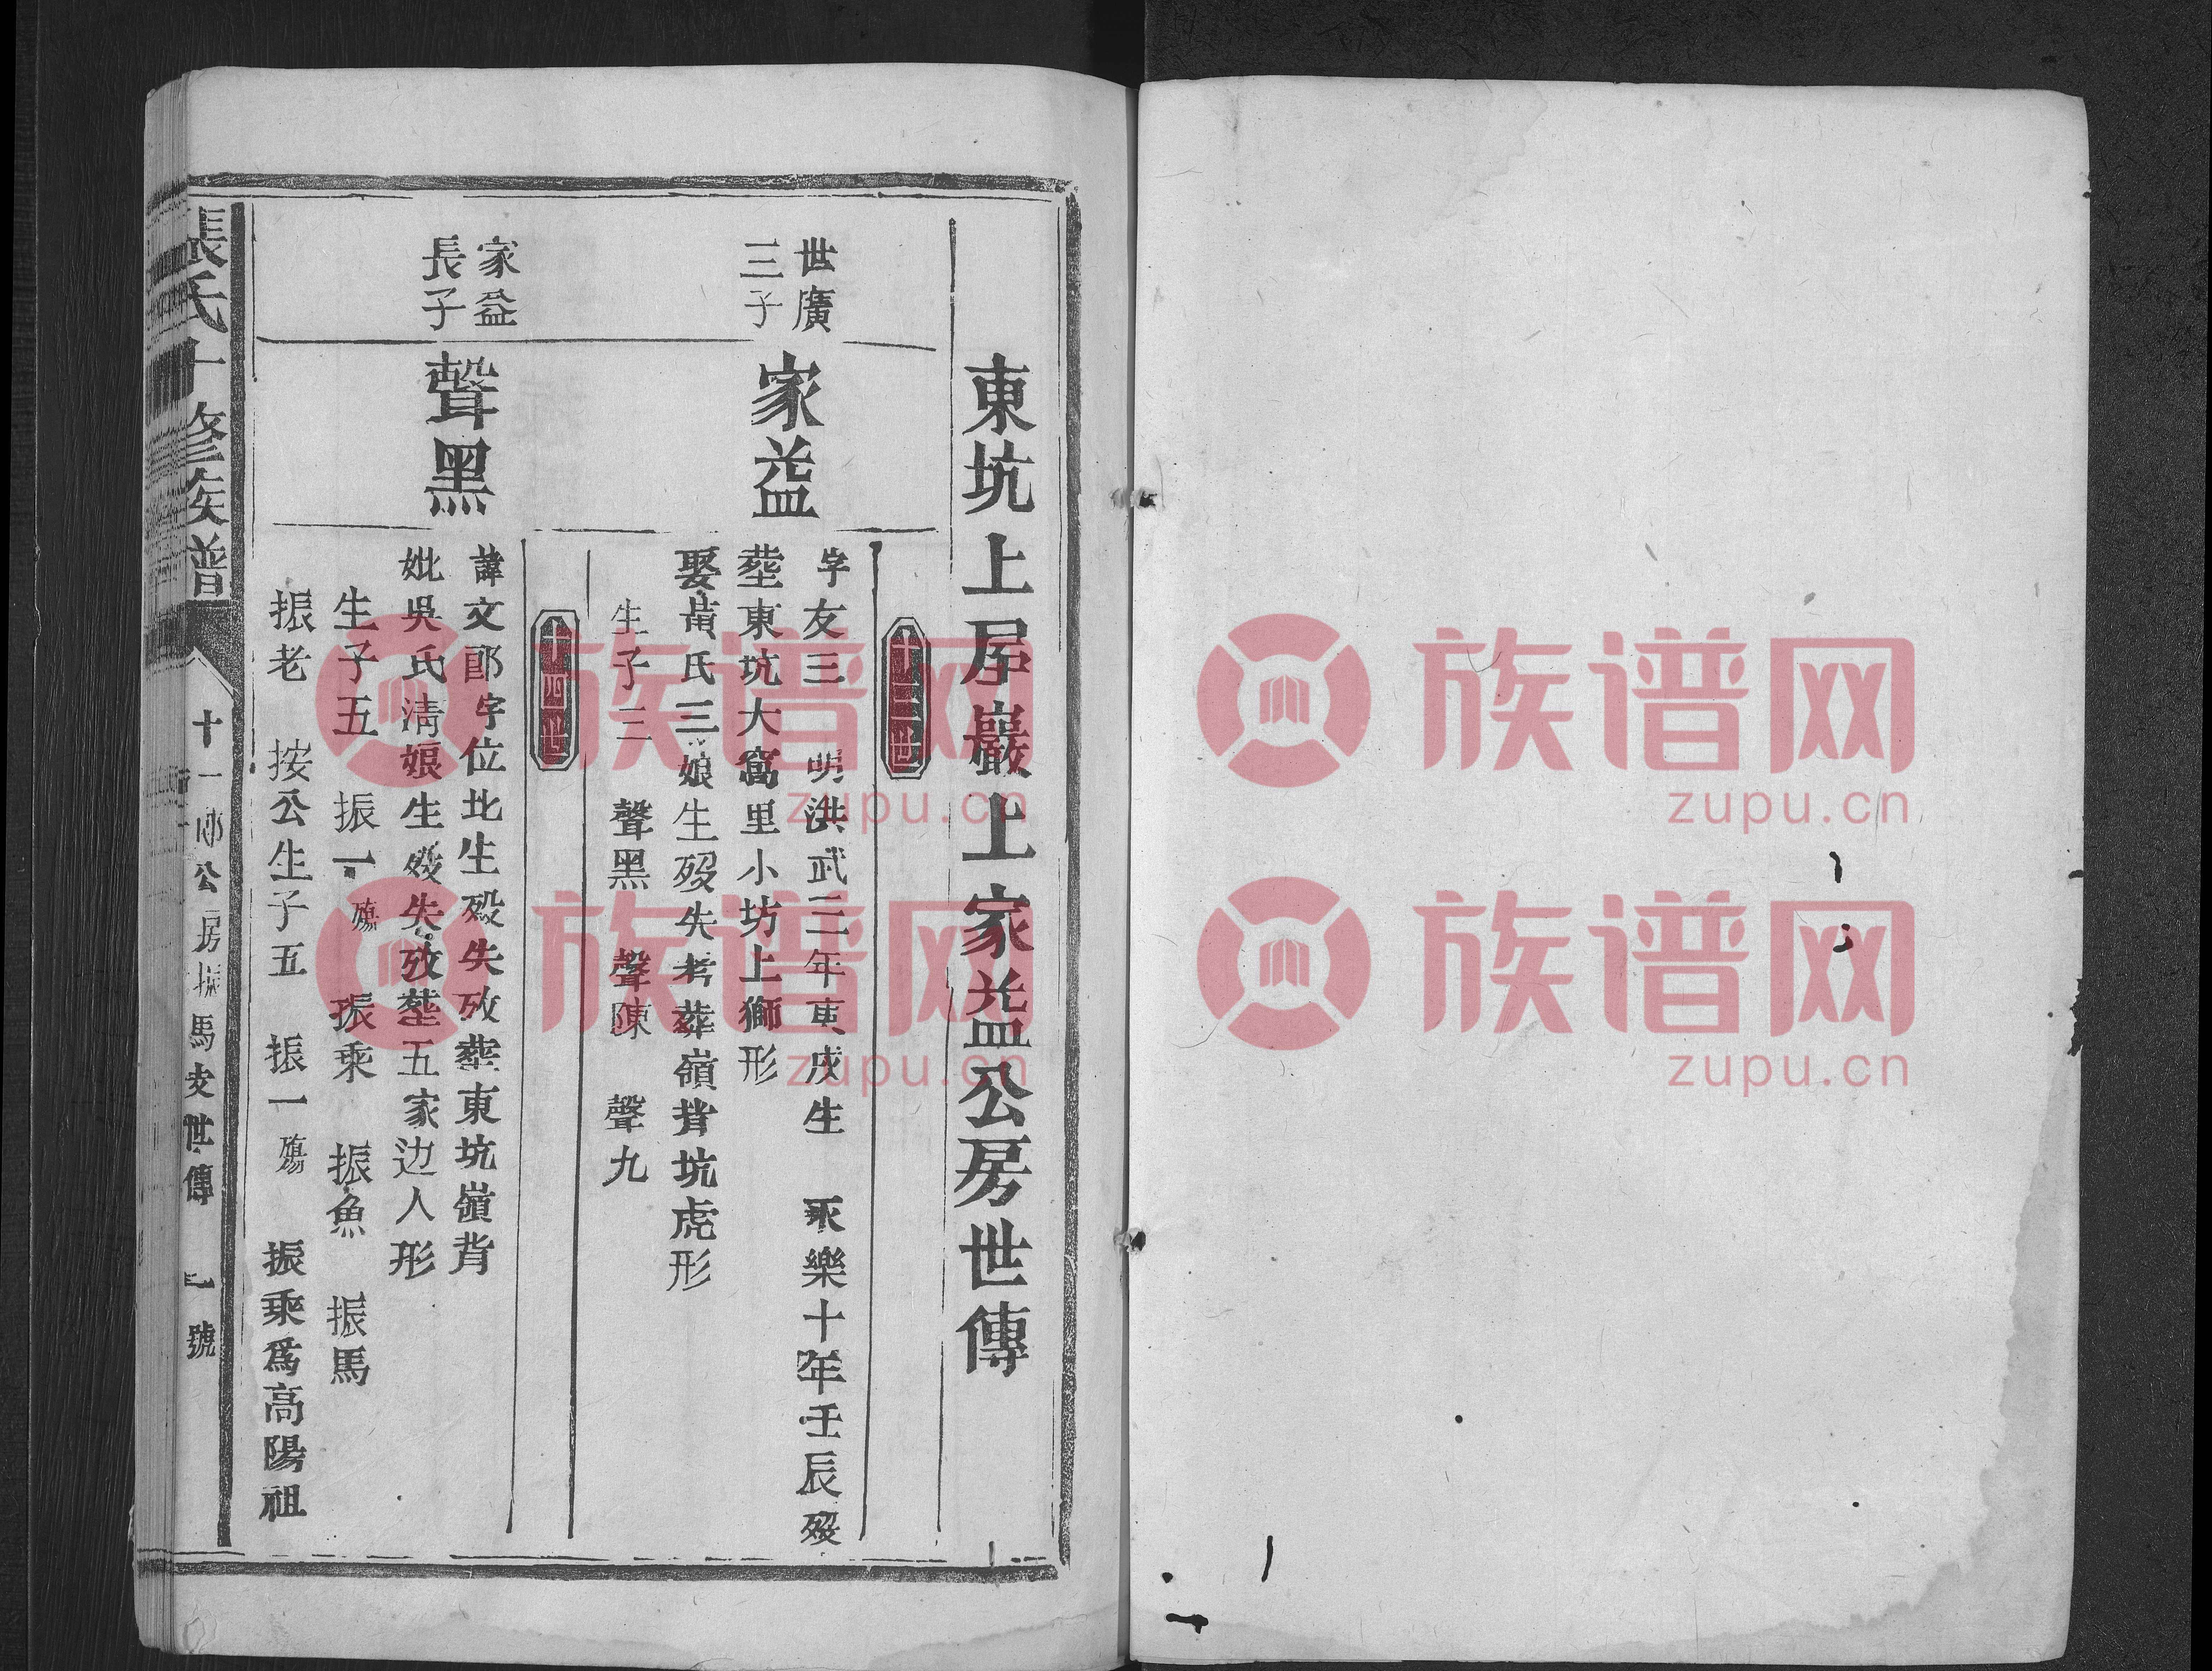 東坑上居巖上家益公房世傳
十三世
世廣
三子
家益
字友三 明洪武三年庚戌生 永樂十年壬辰歿
塟東坑大窩里小坊上獅形
娶黃氏三娘生歿失考葬嶺背坑虎形
生子三 聲黑 聲陳 聲九
十四世
家益
長子
聲黑
諱文郎字位北生歿失攷塟東坑嶺背
妣吳氏清娘生歿失攷塟五家边人形
生子五 振一殤 振乘 振魚 振馬
振老 按公生子五 振一殤 振乘爲高陽祖
張氏十修族譜 十一郎公房振馬支世傳 一號
族谱网
zupu.cn
族谱网
zupu.cn
族谱网
zupu.cn
族谱网
zupu.cn